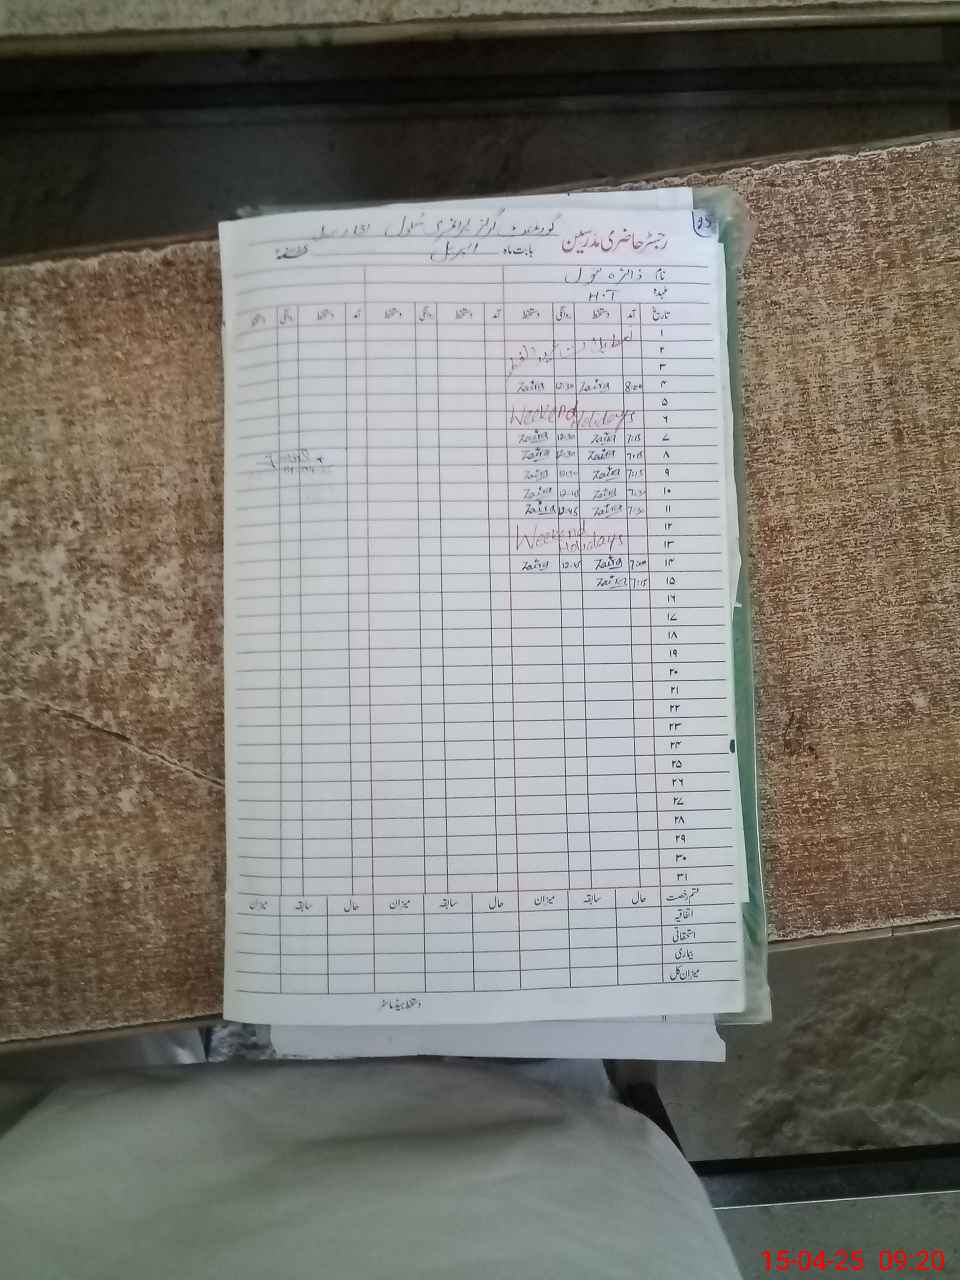 25
گورنمنٹ گرلز پرائمری سکول
رجسٹر حاضری مدرسین بابت ماہ اپریل
نام
عہدہ H.T
تاریخ آمد دستخط روانگی دستخط آمد دستخط روانگی دستخط آمد دستخط روانگی دستخط
۱
۲
۳
۴ 8:00 Zaira 12:30 Zaira
۵ Weekend
۶ Holidays
۷ 7:15 Zaira 12:30 Zaira
۸ 7:15 Zaira 12:30 Zaira
۹ 7:15 Zaira 12:30 Zaira
۱۰ 7:30 Zaira 12:45 Zaira
۱۱ 7:30 Zaira 12:45 Zaira
۱۲ Weekend
۱۳ Holidays
۱۴ 7:00 Zaira 12:45 Zaira
۱۵ 7:15 Zaira
۱۶
۱۷
۱۸
۱۹
۲۰
۲۱
۲۲
۲۳
۲۴
۲۵
۲۶
۲۷
۲۸
۲۹
۳۰
۳۱
قسم رخصت حال سابقہ میزان حال سابقہ میزان حال سابقہ میزان
اتفاقیہ
استحقاقی
بیماری
میزان کل
دستخط ہیڈ ماسٹر
15-04-25 09:20